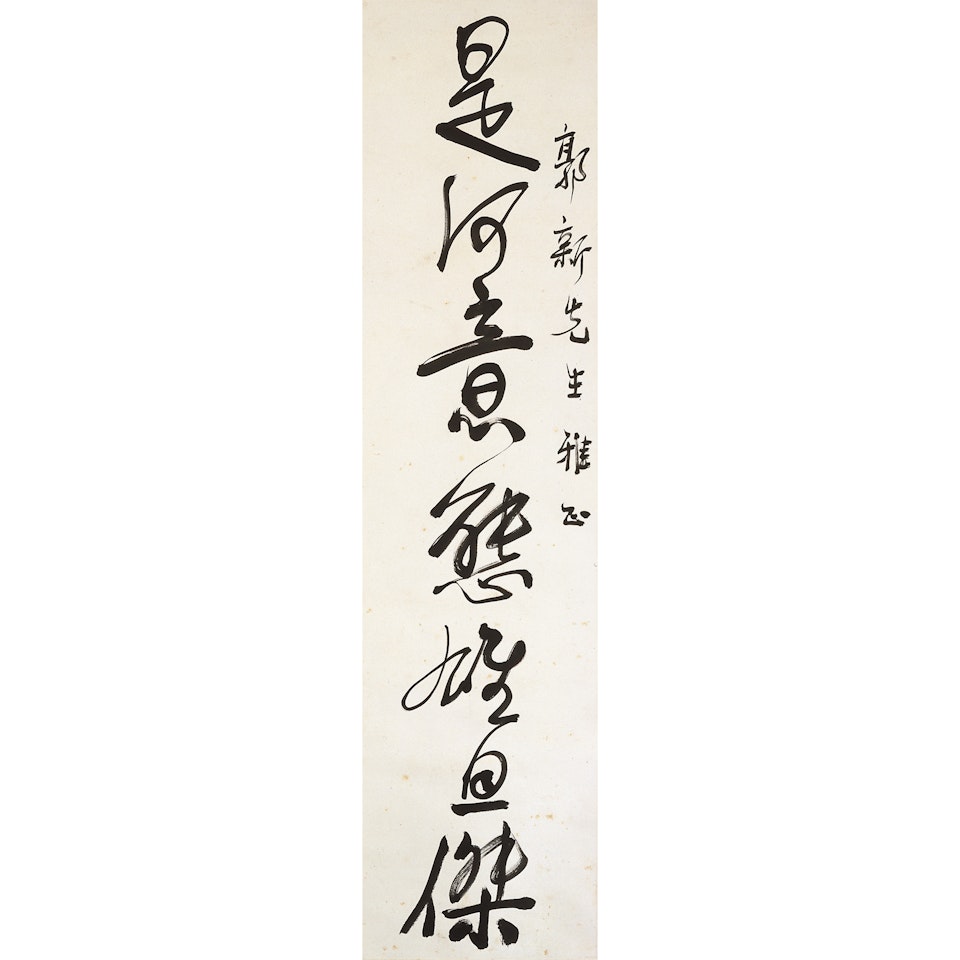 郭新先生雅正
是何意態雄且傑